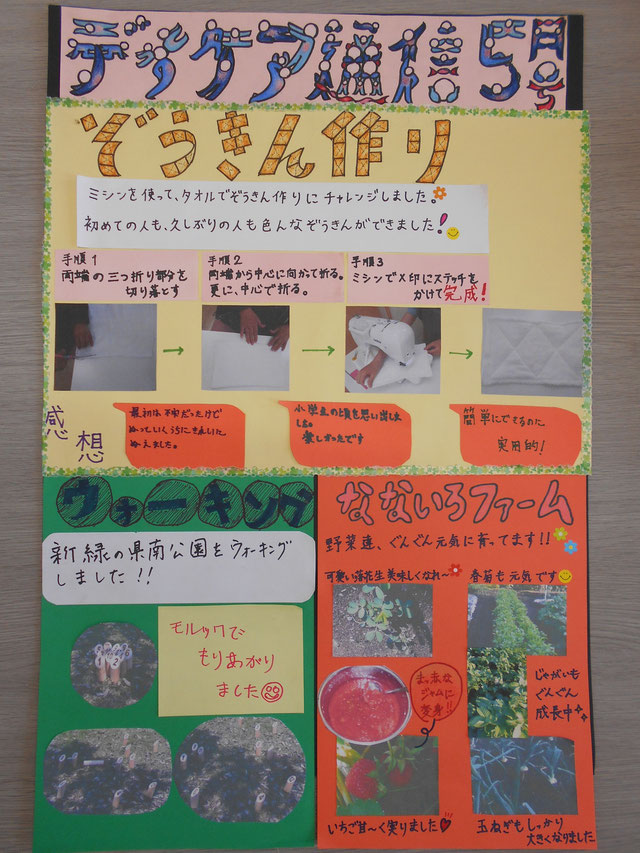 デイケア通信5月号
ぞうきん作り
ミシンを使って、タオルでぞうきん作りにチャレンジしました。
初めての人も、久しぶりの人も色んなぞうきんができました!
手順1
両端の三つ折り部分を
切り落とす
手順2
両端から中心に向かって折る。
更に、中心で折る。
手順3
ミシンで×印にステッチを
かけて完成!
感想
最初は不安だったけど
ぬっていくうちにきれいに
ぬえました。
小学生の頃を思い出しま
した。
楽しかったです
簡単にできるのに
実用的!
ウォーキング
新緑の県南公園をウォーキング
しました!!
モルックで
もりあがり
ました
なないろファーム
野菜達、ぐんぐん元気に育ってます!!
可愛い落花生美味しくなれ〜
春菊も元気です
まっ赤な
ジャムに
変身!!
じゃがいも
ぐんぐん
成長中
いちご甘〜く実りました
玉ねぎもしっかり
大きくなりました